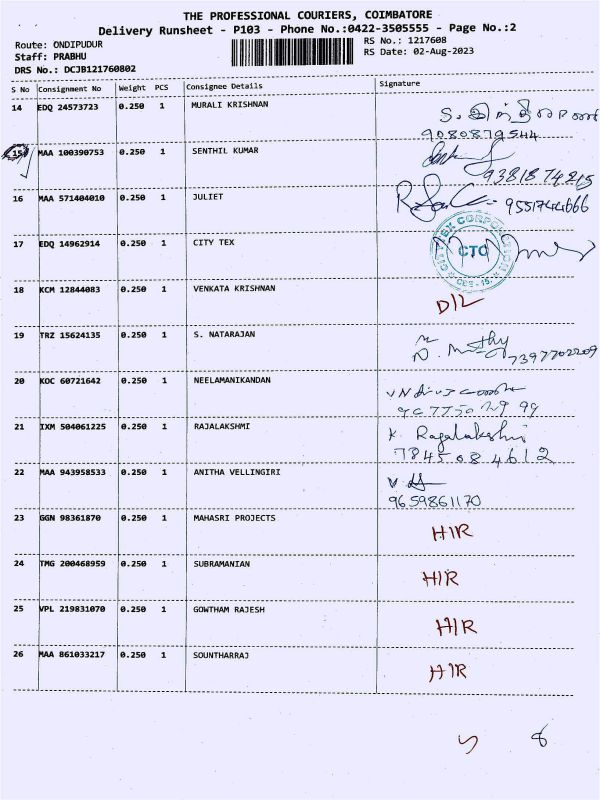 THE PROFESSIONAL COURIERS, COIMBATORE
Delivery Runsheet - P103 - Phone No.:0422-3505555 - Page No.:2
Route: ONDIPUDUR RS No.: 1217608
Staff: PRABHU RS Date: 02-Aug-2023
DRS No.: DCJB121760802
S No Consignment No Weight PCS Consignee Details Signature
14 EDQ 24573723 0.250 1 MURALI KRISHNAN
9080879544
15 MAA 100390753 0.250 1 SENTHIL KUMAR
9381874215
16 MAA 571404010 0.250 1 JULIET
9551744666
17 EDQ 14962914 0.250 1 CITY TEX
CTC
18 KCM 12844083 0.250 1 VENKATA KRISHNAN
D/L
19 TRZ 15624135 0.250 1 S. NATARAJAN
7397702209
20 KOC 60721642 0.250 1 NEELAMANIKANDAN
21 IXM 504061225 0.250 1 RAJALAKSHMI
K. Rajalakshmi
7845084612
22 MAA 943958533 0.250 1 ANITHA VELLINGIRI
9659861170
23 GGN 98361870 0.250 1 MAHASRI PROJECTS
HIR
24 TMG 200468959 0.250 1 SUBRAMANIAN
HIR
25 VPL 219831070 0.250 1 GOWTHAM RAJESH
HIR
26 MAA 861033217 0.250 1 SOUNTHARRAJ
HIR
5 8